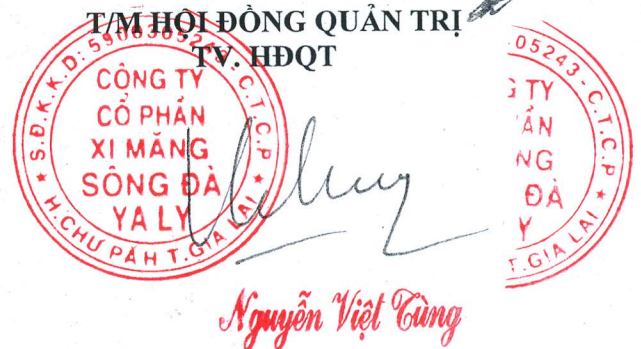 T/M HỘI ĐỒNG QUẢN TRỊ
TV. HĐQT
S.Đ.K.K.D: 5900305243 - C.T.C.P
CÔNG TY
CỔ PHẦN
XI MĂNG
SÔNG ĐÀ
YA LY
H.CHƯ PĂH T.GIA LAI
05243 - C.T.C.P
G TY
ẦN
NG
ĐÀ
Y
T.GIA LAI
Nguyễn Việt Cùng